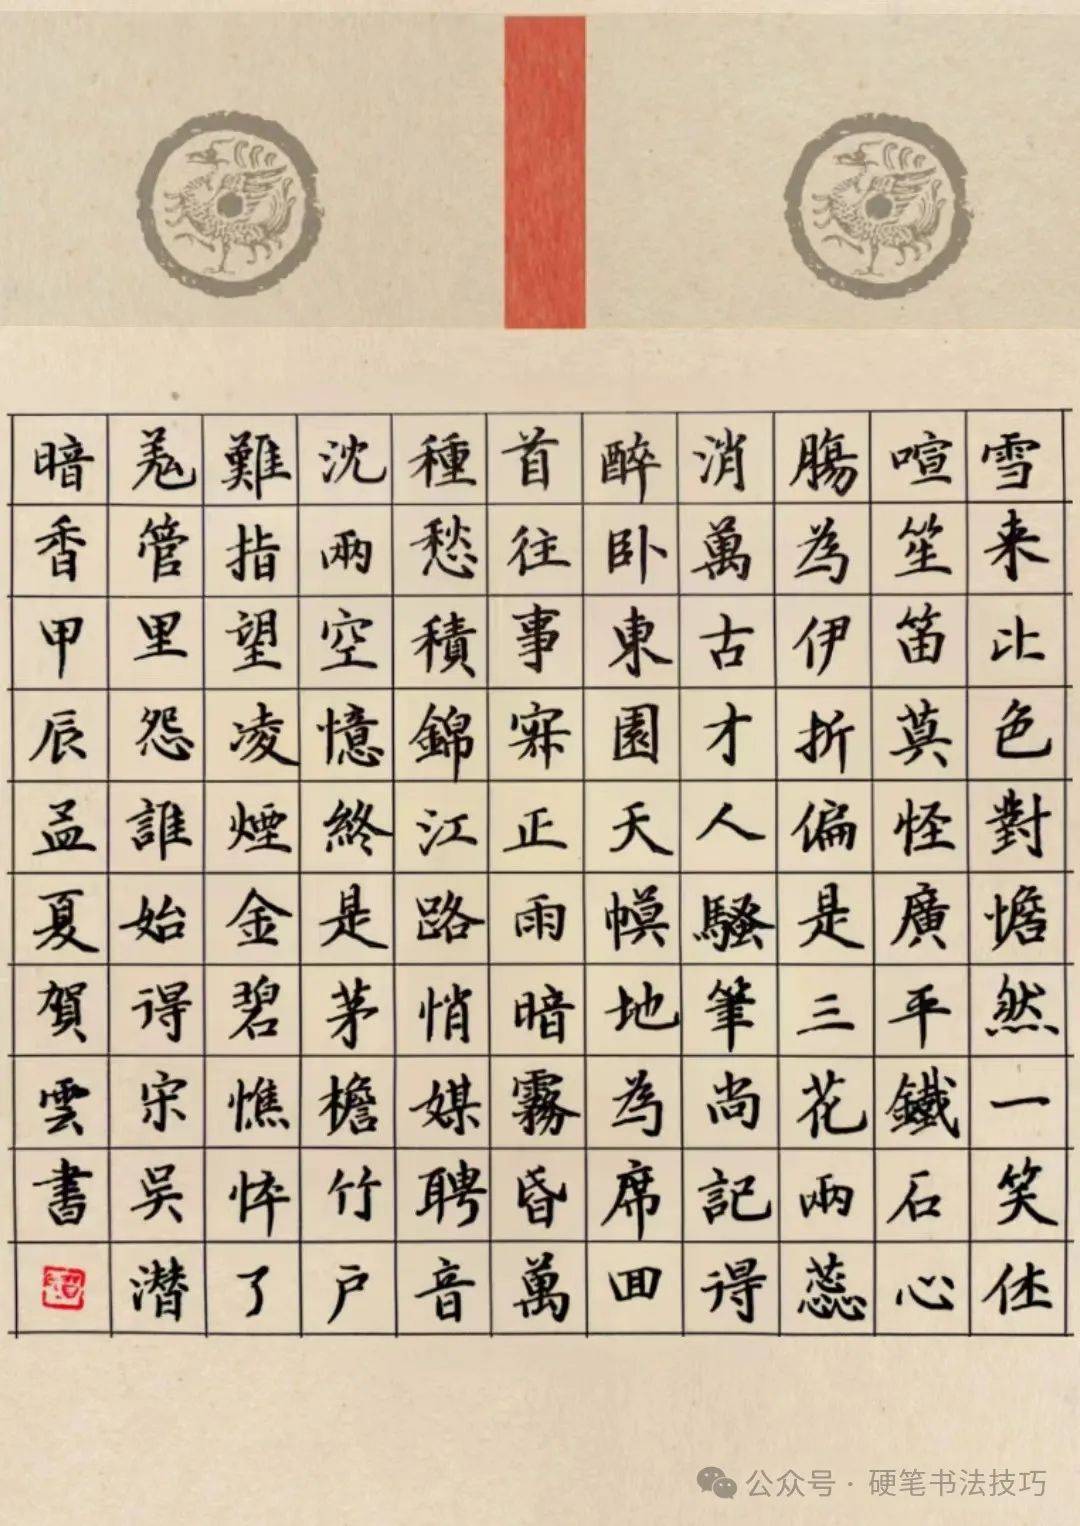 雪来比色對憺然一笑休
喧笙笛莫怪廣平鐵石心
腸為伊折偏是三花兩蕊
消萬古才人騷筆尚記得
醉卧東園天幙地為席回
首往事寂正雨暗霧昏萬
種愁積錦江路悄媒聘音
沈兩空憶終是茅檐竹户
難指望凌煙金碧憔悴了
羗管里怨誰始得宋吳潛
暗香甲辰孟夏賀雲書
公众号·硬笔书法技巧